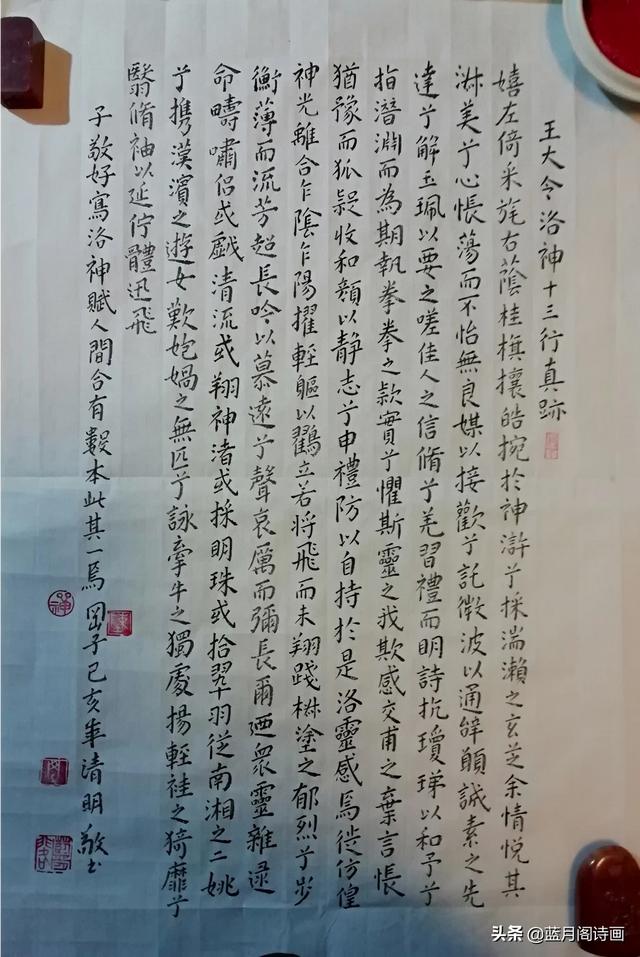 王大令洛神十三行真跡
嬉左倚采旄右蔭桂旗攘皓捥於神滸兮採湍瀨之玄芝余情悅其
淋美兮心悵蕩而不怡無良媒以接歡兮託微波以通辝願誠素之先
達兮解玉珮以要之嗟佳人之信脩兮羌習禮而明詩抗瓊珶以和予兮
指潛淵而為期執拳拳之款實兮懼斯靈之我欺感交甫之棄言悵
猶豫而狐疑收和顏以静志兮申禮防以自持於是洛靈感焉徙仿偟
神光離合乍陰乍陽擢輕軀以鶴立若將飛而未翔踐椒塗之郁烈兮步
衡薄而流芳超長吟以慕遠兮聲哀厲而彌長爾迺衆靈雜遝
命疇嘯侶或戲清流或翔神渚或採明珠或拾翠羽從南湘之二姚
兮携漢濱之遊女歎匏媧之無匹兮詠牽牛之獨處揚輕袿之猗靡兮
翳脩袖以延佇體迅飛
子敬好寫洛神賦人間合有數本此其一焉 子己亥年清明敬书
头条 @蓝月阁诗画